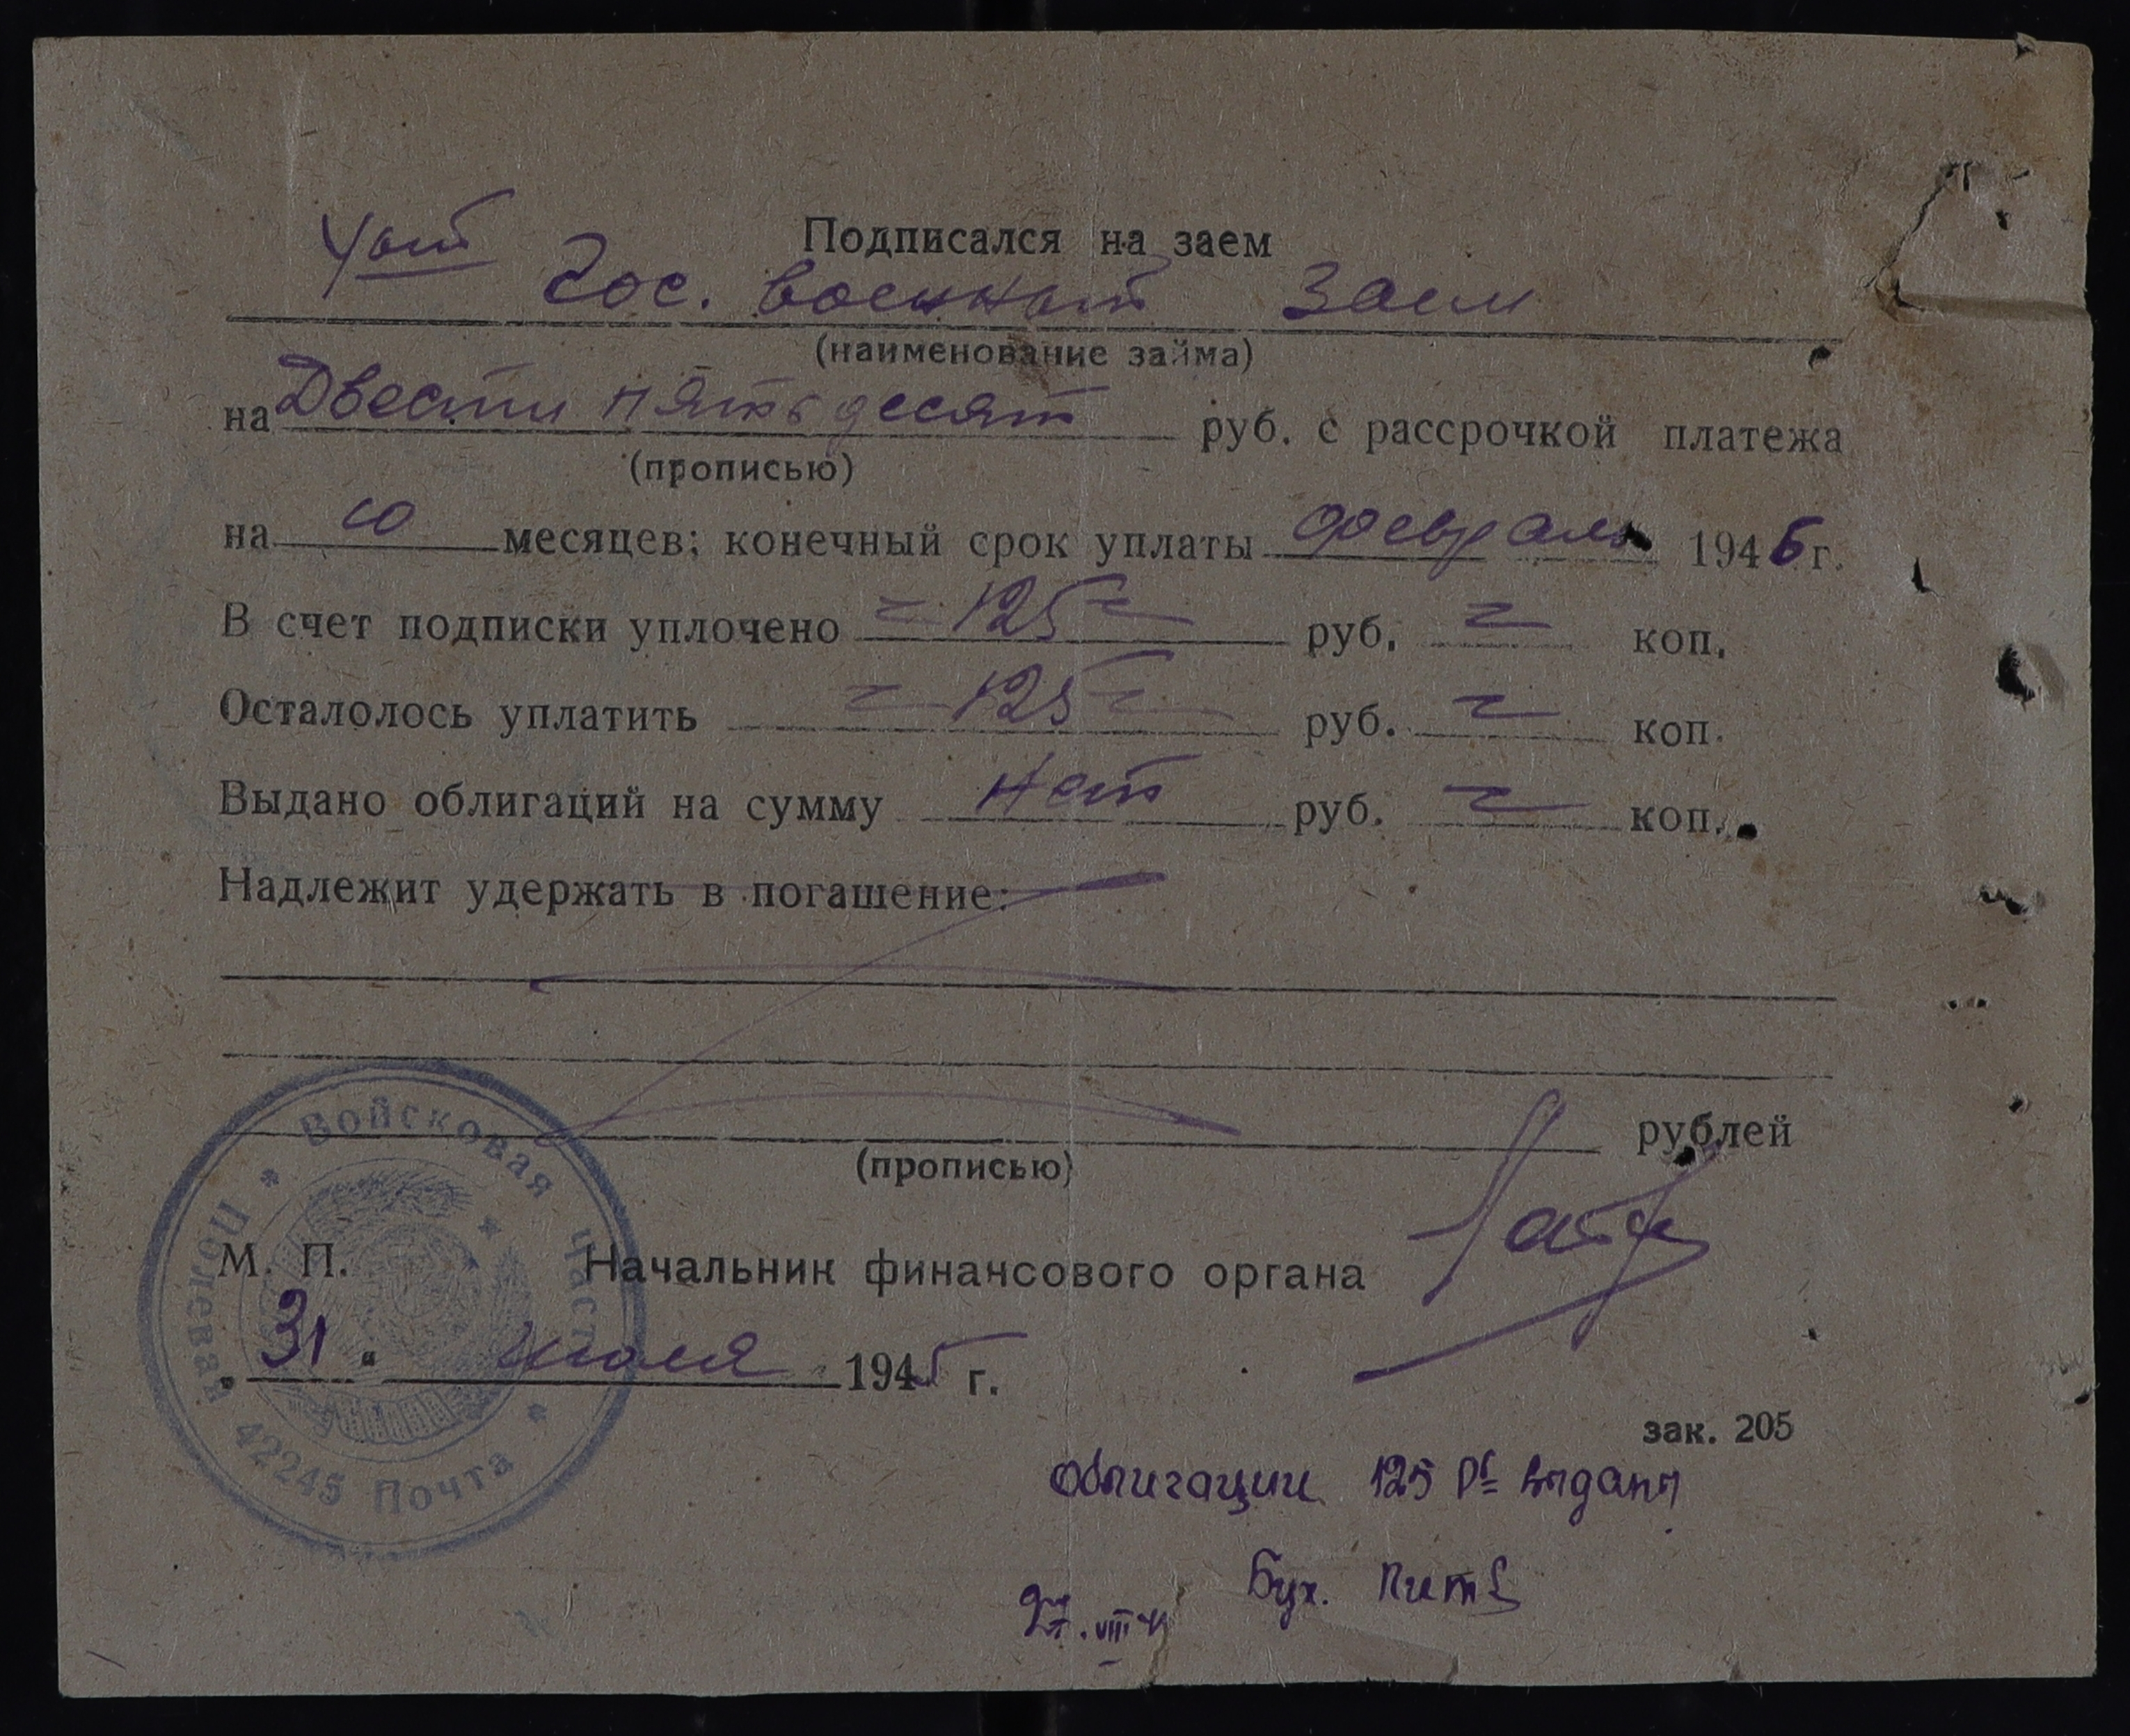 Подписался на заем
4ый Гос. военный заем
(наименование займа)
на Двести пятьдесят руб. с рассрочкой платежа
(прописью)
на 10 месяцев; конечный срок уплаты февраль 1946 г.
В счет подписки уплочено = 125 = руб. = коп.
Осталолось уплатить = 125 = руб. = коп.
Выдано облигаций на сумму нет руб. = коп.
Надлежит удержать в погашение:
рублей
(прописью)
М. П. Начальник финансового органа
31 " июля 1945 г.
Войсковая часть
Полевая Почта
42245
зак. 205
Облигации 125 р= выданы
Бух.